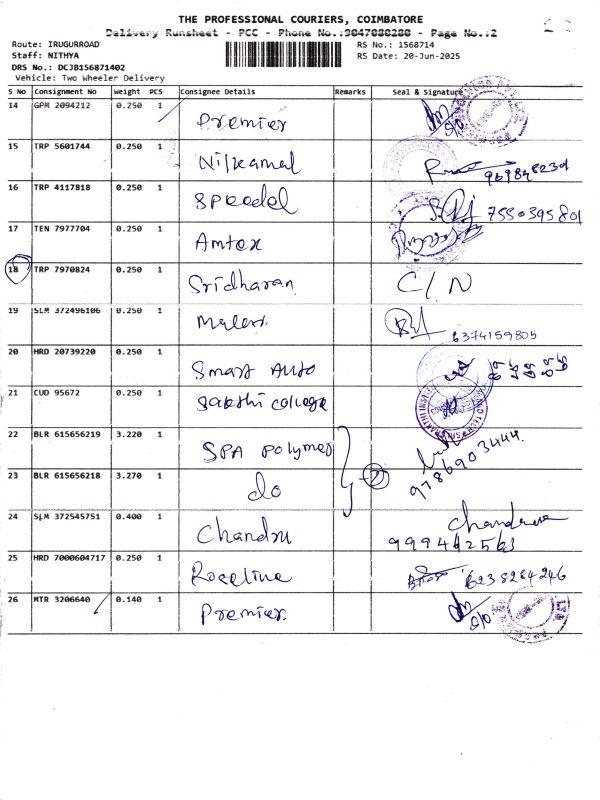 THE PROFESSIONAL COURIERS, COIMBATORE
Delivery Runsheet - PCC - Phone No.:9047080280 - Page No.:2
Route: IRUGURROAD RS No.: 1568714
Staff: NITHYA RS Date: 20-Jun-2025
DRS No.: DCJB156871402
Vehicle: Two Wheeler Delivery
S No Consignment No Weight PCS Consignee Details Remarks Seal & Signature
14 GPM 2094212 0.250 1 Premier
15 TRP 5601744 0.250 1 Nilkamal
16 TRP 4117818 0.250 1 Speedel 7550395801
17 TEN 7977704 0.250 1 Amtex
18 TRP 7970824 0.250 1 Sridharan C/N
19 SLM 372496106 0.250 1 6374159805
20 HRD 20739220 0.250 1 Smart Auto
21 CUD 95672 0.250 1 Sakthi college
22 BLR 615656219 3.220 1 SPA Polymer
9786903444
23 BLR 615656218 3.270 1 do 2
24 SLM 372545751 0.400 1 Chandru
25 HRD 7000604717 0.250 1 Roseline 6238284246
26 MTR 3206640 0.140 1 Premier